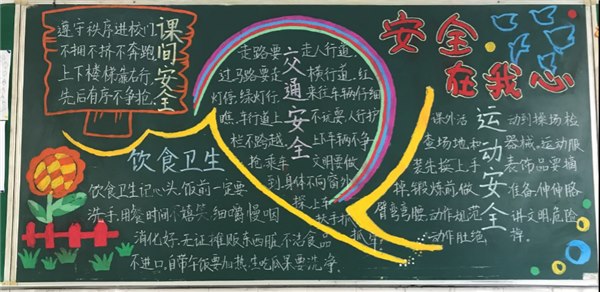 安全
在我心
课间安全
遵守秩序进校门,
不拥不挤不奔跑。
上下楼梯靠右行,
先后有序不争抢。
交通安全
走路要走人行道,
过马路要走横行道。红
灯停,绿灯行,来往车辆仔细
瞧。车行道上不玩耍,人行护
栏不跨越。上下车辆不争
抢,乘车文明要做
到,身体不向窗外
探,上手扶手抓
牢。
饮食卫生
饮食卫生记心头,饭前一定要
洗手,用餐时间不嬉笑,细嚼慢咽
消化好,无证摊贩东西脏,不洁食品
不进口,自带午饭要加热,生吃瓜果要洗净。
运动安全
课外活动到操场,检
查场地和器械,运动服
装先换上,手表饰品要摘
掉,锻炼前做准备,伸伸胳
臂弯弯腰,动作规范讲文明,危险
动作杜绝掉。